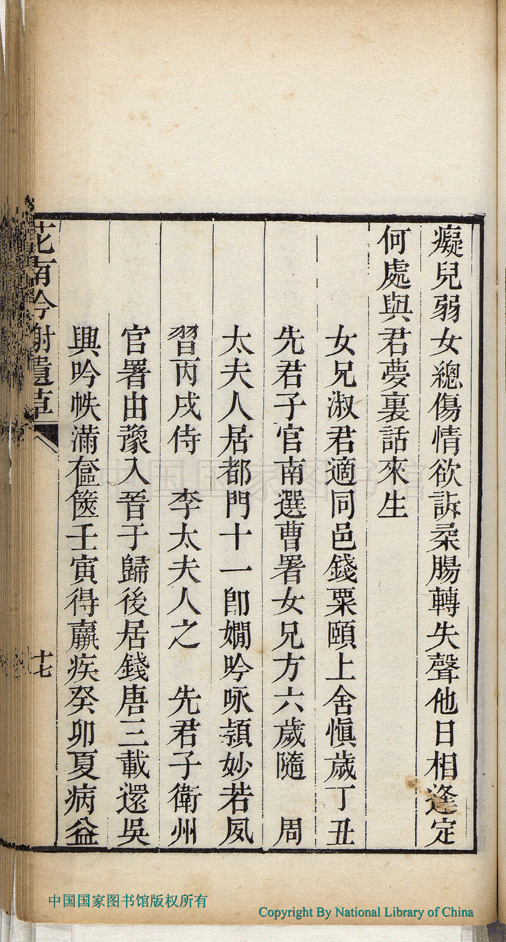 癡兒弱女總傷情欲訴柔腸轉失聲他日相逢定
何處與君夢裏話來生
女兄淑君適同邑錢粟頤上舍愼歲丁丑
先君子官南選曹署女兄方六歲隨　周
太夫人居都門十一卽嫺吟咏頴妙若夙
習丙戌侍　李太夫人之　先君子衞州
官署由豫入晉于歸後居錢唐三載還吳
興吟帙滿奩篋壬寅得羸疾癸卯夏病益
花南吟榭遺草
十七
中国国家图书馆
中国国家图书馆版权所有
Copyright By National Library of China